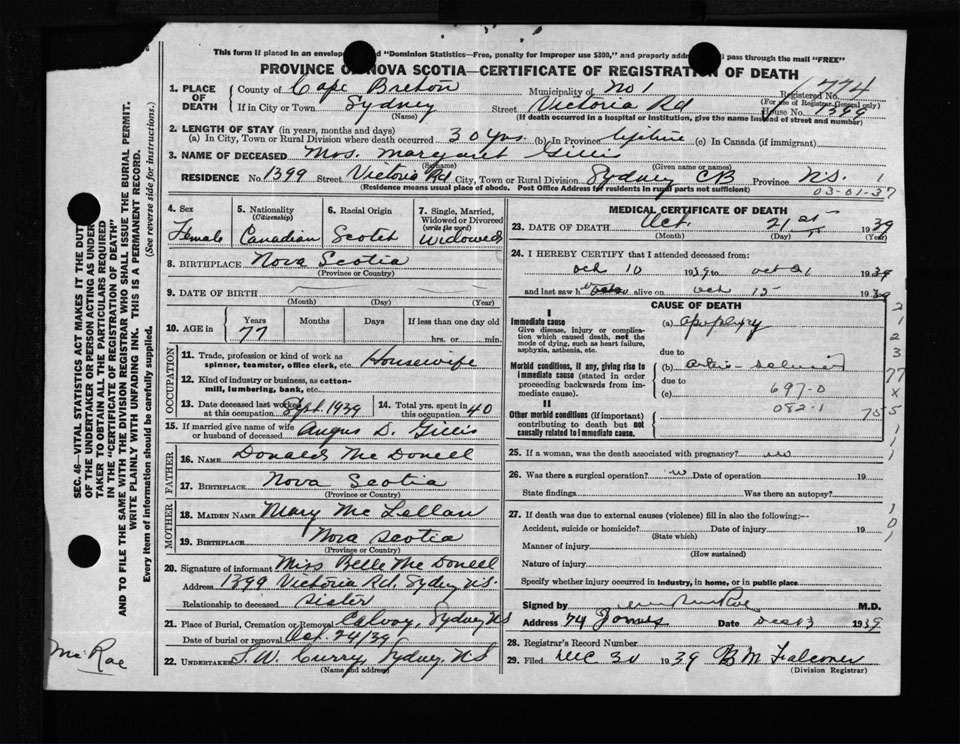 This form if placed in an envelope "Dominion Statistics—Free, penalty for improper use $300," and properly pass through the mail "FREE"
PROVINCE OF NOVA SCOTIA—CERTIFICATE OF REGISTRATION OF DEATH
1. PLACE OF DEATH
County of Cape Breton Municipality of No 1 Registered No. 1774
(For use of Registrar General only)
If in City or Town Sydney Street Victoria Rd House No. 1399
(Name) (If death occurred in a hospital or institution, give the name instead of street and number)
2. LENGTH OF STAY (in years, months and days)
(a) In City, Town or Rural Division where death occurred 30 yrs. (b) In Province Lifetime (c) In Canada (if immigrant)
3. NAME OF DECEASED Mrs. Margaret Gillis
(Surname) (Given name or names)
RESIDENCE No. 1399 Street Victoria Rd City, Town or Rural Division Sydney CB Province N.S.
(Residence means usual place of abode. Post Office Address for residents in rural parts not sufficient) 03-01-37
4. Sex Female
5. Nationality (Citizenship) Canadian
6. Racial Origin Scotch
7. Single, Married, Widowed or Divorced (write the word) Widowed
8. BIRTHPLACE Nova Scotia
(Province or Country)
9. DATE OF BIRTH
(Month) (Day) (Year)
10. AGE in Years Months Days If less than one day old
77 hrs. or min.
OCCUPATION
11. Trade, profession or kind of work as spinner, teamster, office clerk, etc. Housewife
12. Kind of industry or business, as cotton-mill, lumbering, bank, etc.
13. Date deceased last worked at this occupation Sept. 1939
14. Total yrs. spent in this occupation 40
15. If married give name of wife or husband of deceased Angus D. Gillis
FATHER
16. NAME Donald Mc Donell
17. BIRTHPLACE Nova Scotia
(Province or Country)
MOTHER
18. MAIDEN NAME Mary Mc Lellan
19. BIRTHPLACE Nova Scotia
(Province or Country)
20. Signature of informant Miss Belle Mc Donell
Address 1399 Victoria Rd, Sydney N.S.
Relationship to deceased sister
21. Place of Burial, Cremation or Removal Calvary, Sydney NS
Date of burial or removal Oct. 24/39
22. UNDERTAKER S. W. Curry, Sydney, N.S.
(Name and address)
MEDICAL CERTIFICATE OF DEATH
23. DATE OF DEATH Oct. 21st 1939
(Month) (Day) (Year)
24. I HEREBY CERTIFY that I attended deceased from:
Oct 10 1939 to Oct 21 1939
and last saw h alive on Oct 15 1939
CAUSE OF DEATH
I
Immediate cause (a) apoplexy
Give disease, injury or complication which caused death, not the mode of dying, such as heart failure, asphyxia, asthenia, etc.
due to
Morbid conditions, if any, giving rise to immediate cause (stated in order proceeding backwards from immediate cause). (b)
due to
(c) 697-0
082.1
II
Other morbid conditions (if important) contributing to death but not causally related to immediate cause.
25. If a woman, was the death associated with pregnancy? no
26. Was there a surgical operation? no Date of operation 19
State findings Was there an autopsy?
27. If death was due to external causes (violence) fill in also the following:—
Accident, suicide or homicide? Date of injury 19
(State which)
Manner of injury
(How sustained)
Nature of injury
Specify whether injury occurred in industry, in home, or in public place
Signed by M.D.
Address 74 Date 1939
28. Registrar's Record Number
29. Filed Dec 30 1939 B M Falconer
(Division Registrar)
(See reverse side for instructions.)
SEC. 46—VITAL STATISTICS ACT MAKES IT THE DUTY
OF THE UNDERTAKER OR PERSON ACTING AS UNDER
TAKER TO OBTAIN ALL THE PARTICULARS REQUIRED
IN THE "CERTIFICATE OF REGISTRATION OF DEATH"
AND TO FILE THE SAME WITH THE DIVISION REGISTRAR WHO SHALL ISSUE THE BURIAL PERMIT.
WRITE PLAINLY WITH UNFADING INK. THIS IS A PERMANENT RECORD.
Every item of information should be carefully supplied.
Mc Rae